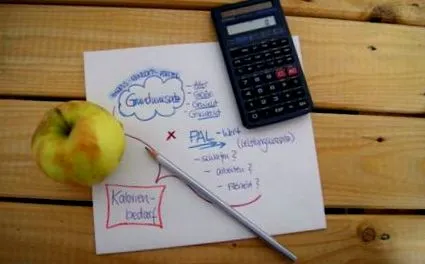 Grundumsatz
- Alter
- Größe
- Gewicht
x PAL-Wert
(Leistungsumsatz)
- schlafen?
- arbeiten?
- Freizeit?
Kalorien-
bedarf